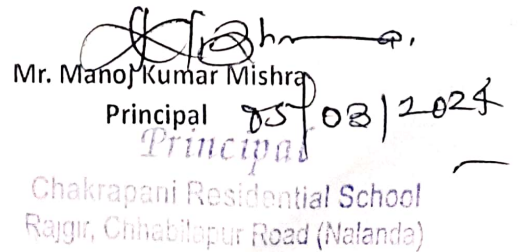 Mr. Manoj Kumar Mishra
Principal 05/08/2024
Principal
Chakrapani Residential School
Rajgir, Chhabilapur Road (Nalanda)